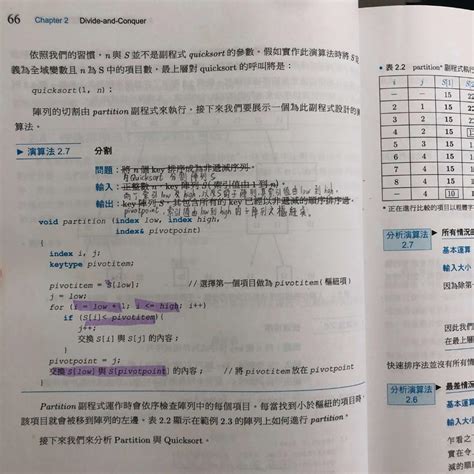 66 Chapter 2 Divide-and-Conquer
依照我們的習慣，n 與 S 並不是副程式 quicksort 的參數。假如實作此演算法時將 S 定
義為全域變數且 n 為 S 中的項目數，最上層對 quicksort 的呼叫將是：
quicksort(1, n) ;
陣列的切割由 partition 副程式來執行，接下來我們要展示一個為此副程式設計的演
算法。
▶ 演算法 2.7 分割
問題：將 n 個 key 排序成為非遞減序列。
為 Quicksort 分割陣列 S
輸入：正整數 n，key 陣列 S（索引值由 1 到 n）。
輸出：key 陣列 S，其包含所有的 key 已經以非遞減的順序排序過。
pivotpoint，索引值由 low 到 high
void partition (index low, index high,
index& pivotpoint)
{
index i, j;
keytype pivotitem;
pivotitem = S[low]; // 選擇第一個項目做為 pivotitem（樞紐項）
j = low;
for (i = low + 1; i <= high; i++)
if (S[i] < pivotitem){
j++;
交換 S[i] 與 S[j] 的內容；
}
pivotpoint = j;
交換 S[low] 與 S[pivotpoint] 的內容； // 將 pivotitem 放在 pivotpoint
}
Partition 副程式運作時會依序檢查陣列中的每個項目。每當找到小於樞紐項的項目時，
該項目就會被移到陣列的左邊。表 2.2 顯示在範例 2.3 的陣列上如何進行 partition。
接下來我們來分析 Partition 與 Quicksort。
• 表 2.2 partition* 副程式執行
i j S[1] S[2]
- - 15 22
2 1 15 22
3 1 15
4 2 15
5 3 15
6 4 15
7 4 15
8 4 15
4
* 正在進行比較的項目以粗體字
分析演算法 ▶ 所有情況
2.7
基本運算
輸入大小
因為除第
因此
在最上層
快速排序法並沒有所有情
分析演算法 ▶ 最差情況
2.6
基本運算
輸入大小
乍看之
實在
減的順